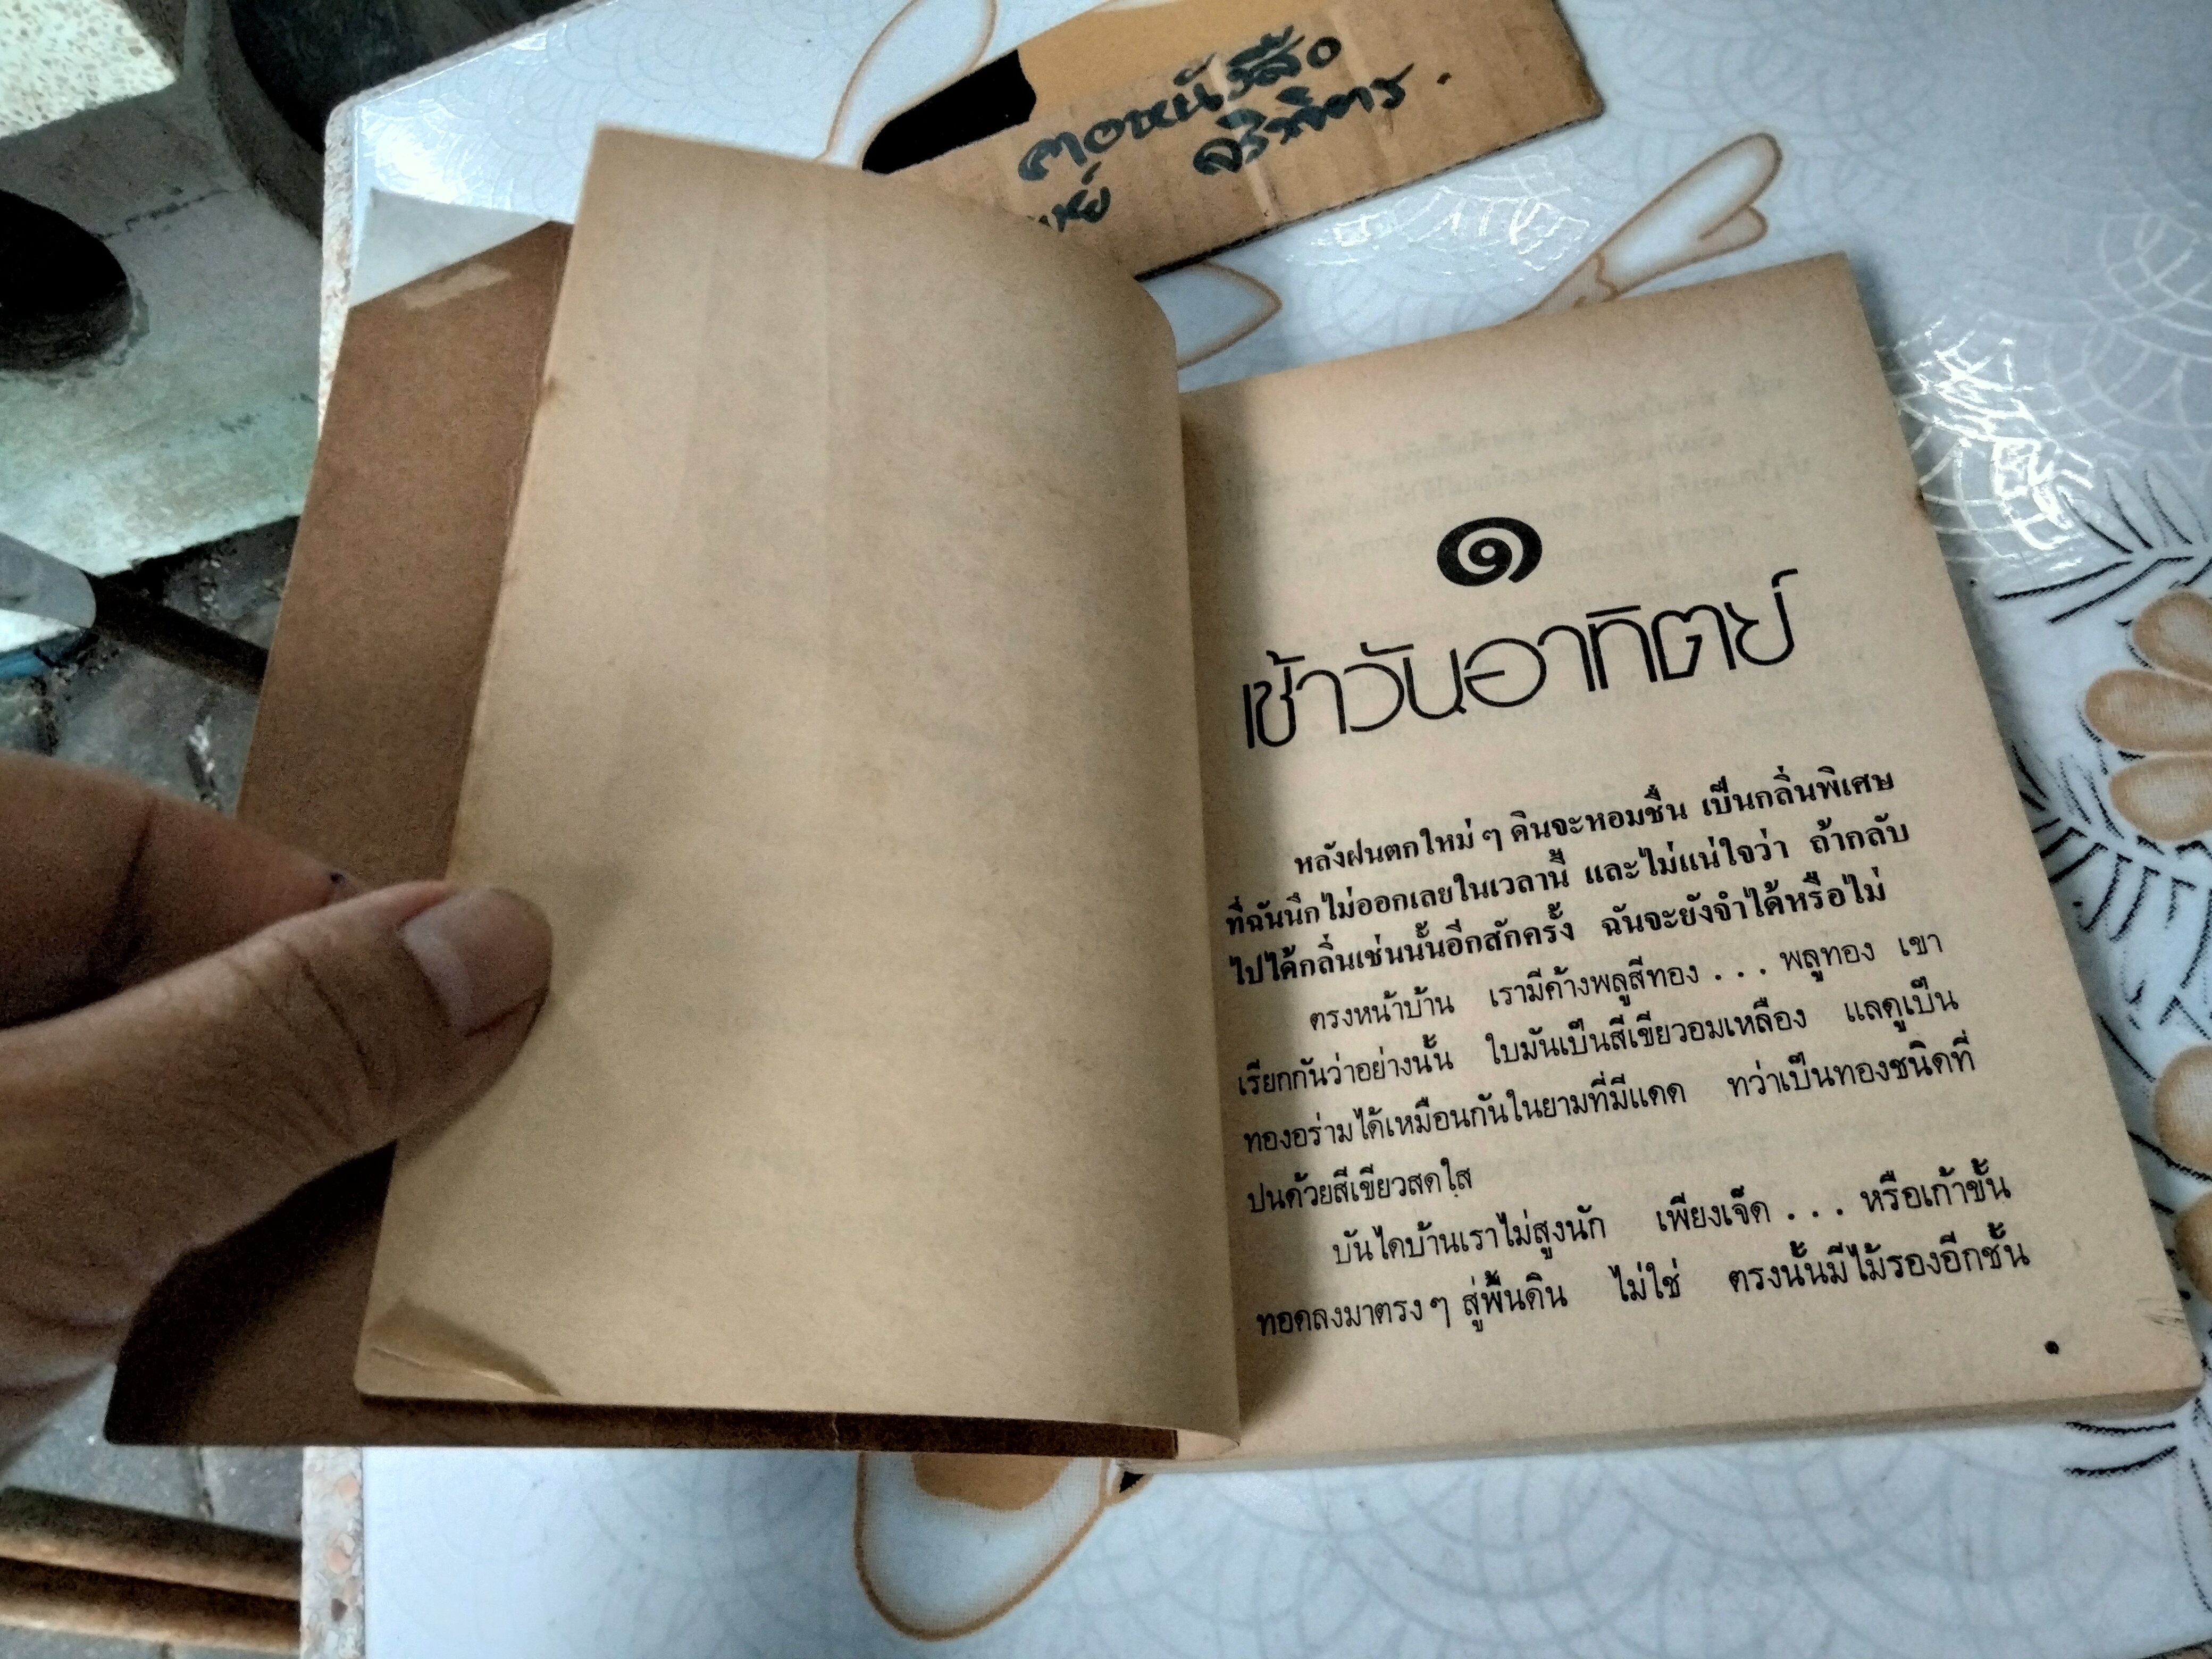 คอหนังสือ
๑
เช้าวันอาทิตย์
หลังฝนตกใหม่ ๆ ดินจะหอมชื่น เป็นกลิ่นพิเศษ
ที่ฉันนึกไม่ออกเลยในเวลานี้ และไม่แน่ใจว่า ถ้ากลับ
ไปได้กลิ่นเช่นนั้นอีกสักครั้ง ฉันจะยังจำได้หรือไม่
ตรงหน้าบ้าน เรามีค้างพลูสีทอง . . . พลูทอง เขา
เรียกกันว่าอย่างนั้น ใบมันเป็นสีเขียวอมเหลือง แลดูเป็น
ทองอร่ามได้เหมือนกันในยามที่มีแดด ทว่าเป็นทองชนิดที่
ปนด้วยสีเขียวสดใส
บันไดบ้านเราไม่สูงนัก เพียงเจ็ด . . . หรือเก้าขั้น
ทอดลงมาตรง ๆ สู่พื้นดิน ไม่ใช่ ตรงนั้นมีไม้รองอีกชั้น
๑